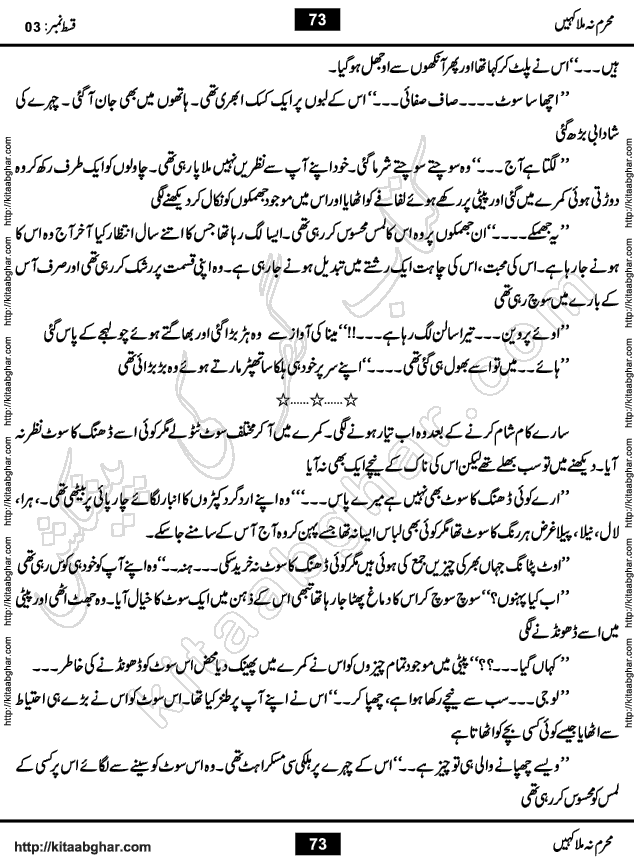 محرم نہ ملا کہیں 73 قسط نمبر: 03
ہیں ۔۔۔‘‘اس نے پلٹ کر کہا تھا اور پھر آنکھوں سے اوجھل ہو گیا۔
’’ اچھا سا سوٹ ۔۔۔۔صاف صفائی۔۔۔‘‘ اس کے لبوں پر ایک کسک ابھری تھی۔ ہاتھوں میں بھی جان آ گئی ۔ چہرے کی
شادابی بڑھ گئی
’’ لگتا ہے آج ۔۔۔‘‘وہ سوچتے سوچتے شرما گئی۔ خود اپنے آپ سے نظریں نہیں ملا پا رہی تھی۔ چاولوں کو ایک طرف رکھ کر وہ
دوڑتی ہوئی کمرے میں گئی اور پیٹی پر رکھے ہوئے لفافے کو اٹھایا اور اس میں موجود جھمکوں کو نکال کر دیکھنے لگی
’’ یہ جھمکے ۔۔۔۔‘‘ان جھمکوں پر وہ اس کا لمس محسوس کر رہی تھی۔ ایسا لگ رہا تھا جس کا اتنے سال انتظار کیا آخر آج وہ اس کا
ہونے جا رہا ہے۔ اس کی محبت، اس کی چاہت ایک رشتے میں تبدیل ہونے جا رہی ہے۔ وہ اپنی قسمت پر رشک کر رہی تھی اور صرف آس
کے بارے میں سوچ رہی تھی
’’ اوئے پروین ۔۔۔ تیرا سالن لگ رہا ہے۔۔۔!!‘‘ مینا کی آواز سے وہ ہڑبڑا گئی اور بھاگتے ہوئے چولہے کے پاس گئی
’’ ہائے ۔۔ میں تو اسے بھول ہی گئی تھی ۔۔۔۔‘‘ اپنے سر پر خود ہی ہلکا سا تھپڑ مارتے ہوئے وہ بڑبڑائی تھی
☆......☆......☆
سارے کام شام کرنے کے بعد وہ اب تیار ہونے لگی۔ کمرے میں آ کر مختلف سوٹ ٹٹولے مگر کوئی اسے ڈھنگ کا سوٹ نظر نہ
آیا۔ دیکھنے میں تو سب بھلے تھے لیکن اس کی ناک کے نیچے ایک بھی نہ آیا
’’ارے کوئی ڈھنگ کا سوٹ بھی نہیں ہے میرے پاس ۔۔۔‘‘ وہ اپنے ارد گرد کپڑوں کا انبار لگائے چارپائی پر بیٹھی تھی ۔، ہرا،
لال، نیلا، پیلا غرض ہر رنگ کا سوٹ تھا مگر کوئی بھی لباس ایسا نہ تھا جسے پہن کر وہ آج آس کے سامنے جا سکے۔
’’اوٹ پٹانگ جہاں بھر کی چیزیں جمع کی ہوئی ہیں مگر کوئی ڈھنگ کا سوٹ نہ خرید سکی ۔۔۔ ہنہ۔۔‘‘وہ اپنے آپ کو خود ہی کوس رہی تھی
’’ اب کیا پہنوں؟‘‘ سوچ سوچ کر اس کا دماغ پھٹا جا رہا تھا تبھی اس کے ذہن میں ایک سوٹ کا خیال آیا۔ وہ جھٹ اٹھی اور پیٹی
میں اسے ڈھونڈنے لگی
’’ کہاں گیا ۔۔۔؟؟‘‘ پیٹی میں موجود تمام چیزوں کو اس نے کمرے میں پھینک دیا محض اس سوٹ کو ڈھونڈنے کی خاطر۔۔۔
’’ لو جی ۔۔۔ سب سے نیچے رکھا ہوا ہے، چھپا کر۔۔‘‘ اس نے اپنے آپ پر طنز کیا تھا۔ اس سوٹ کو اس نے بڑے ہی احتیاط
سے اٹھایا جیسے کوئی کسی بچے کو اٹھاتا ہے
’’ ویسے چھپانے والی ہی تو چیز ہے ۔۔‘‘ اس کے چہرے پر ہلکی سی مسکراہٹ تھی۔ وہ اس سوٹ کو سینے سے لگائے اس پر کسی کے
لمس کو محسوس کر رہی تھی
http://kitaabghar.com http://kitaabghar.com http://kitaabghar.com http://kitaabghar.com http://kitaabghar.com http://kitaabghar.com
http://kitaabghar.com http://kitaabghar.com http://kitaabghar.com http://kitaabghar.com http://kitaabghar.com http://kitaabghar.com
کتاب گھر کی پیشکش
kitaabghar.com
محرم نہ ملا کہیں 73 http://kitaabghar.com